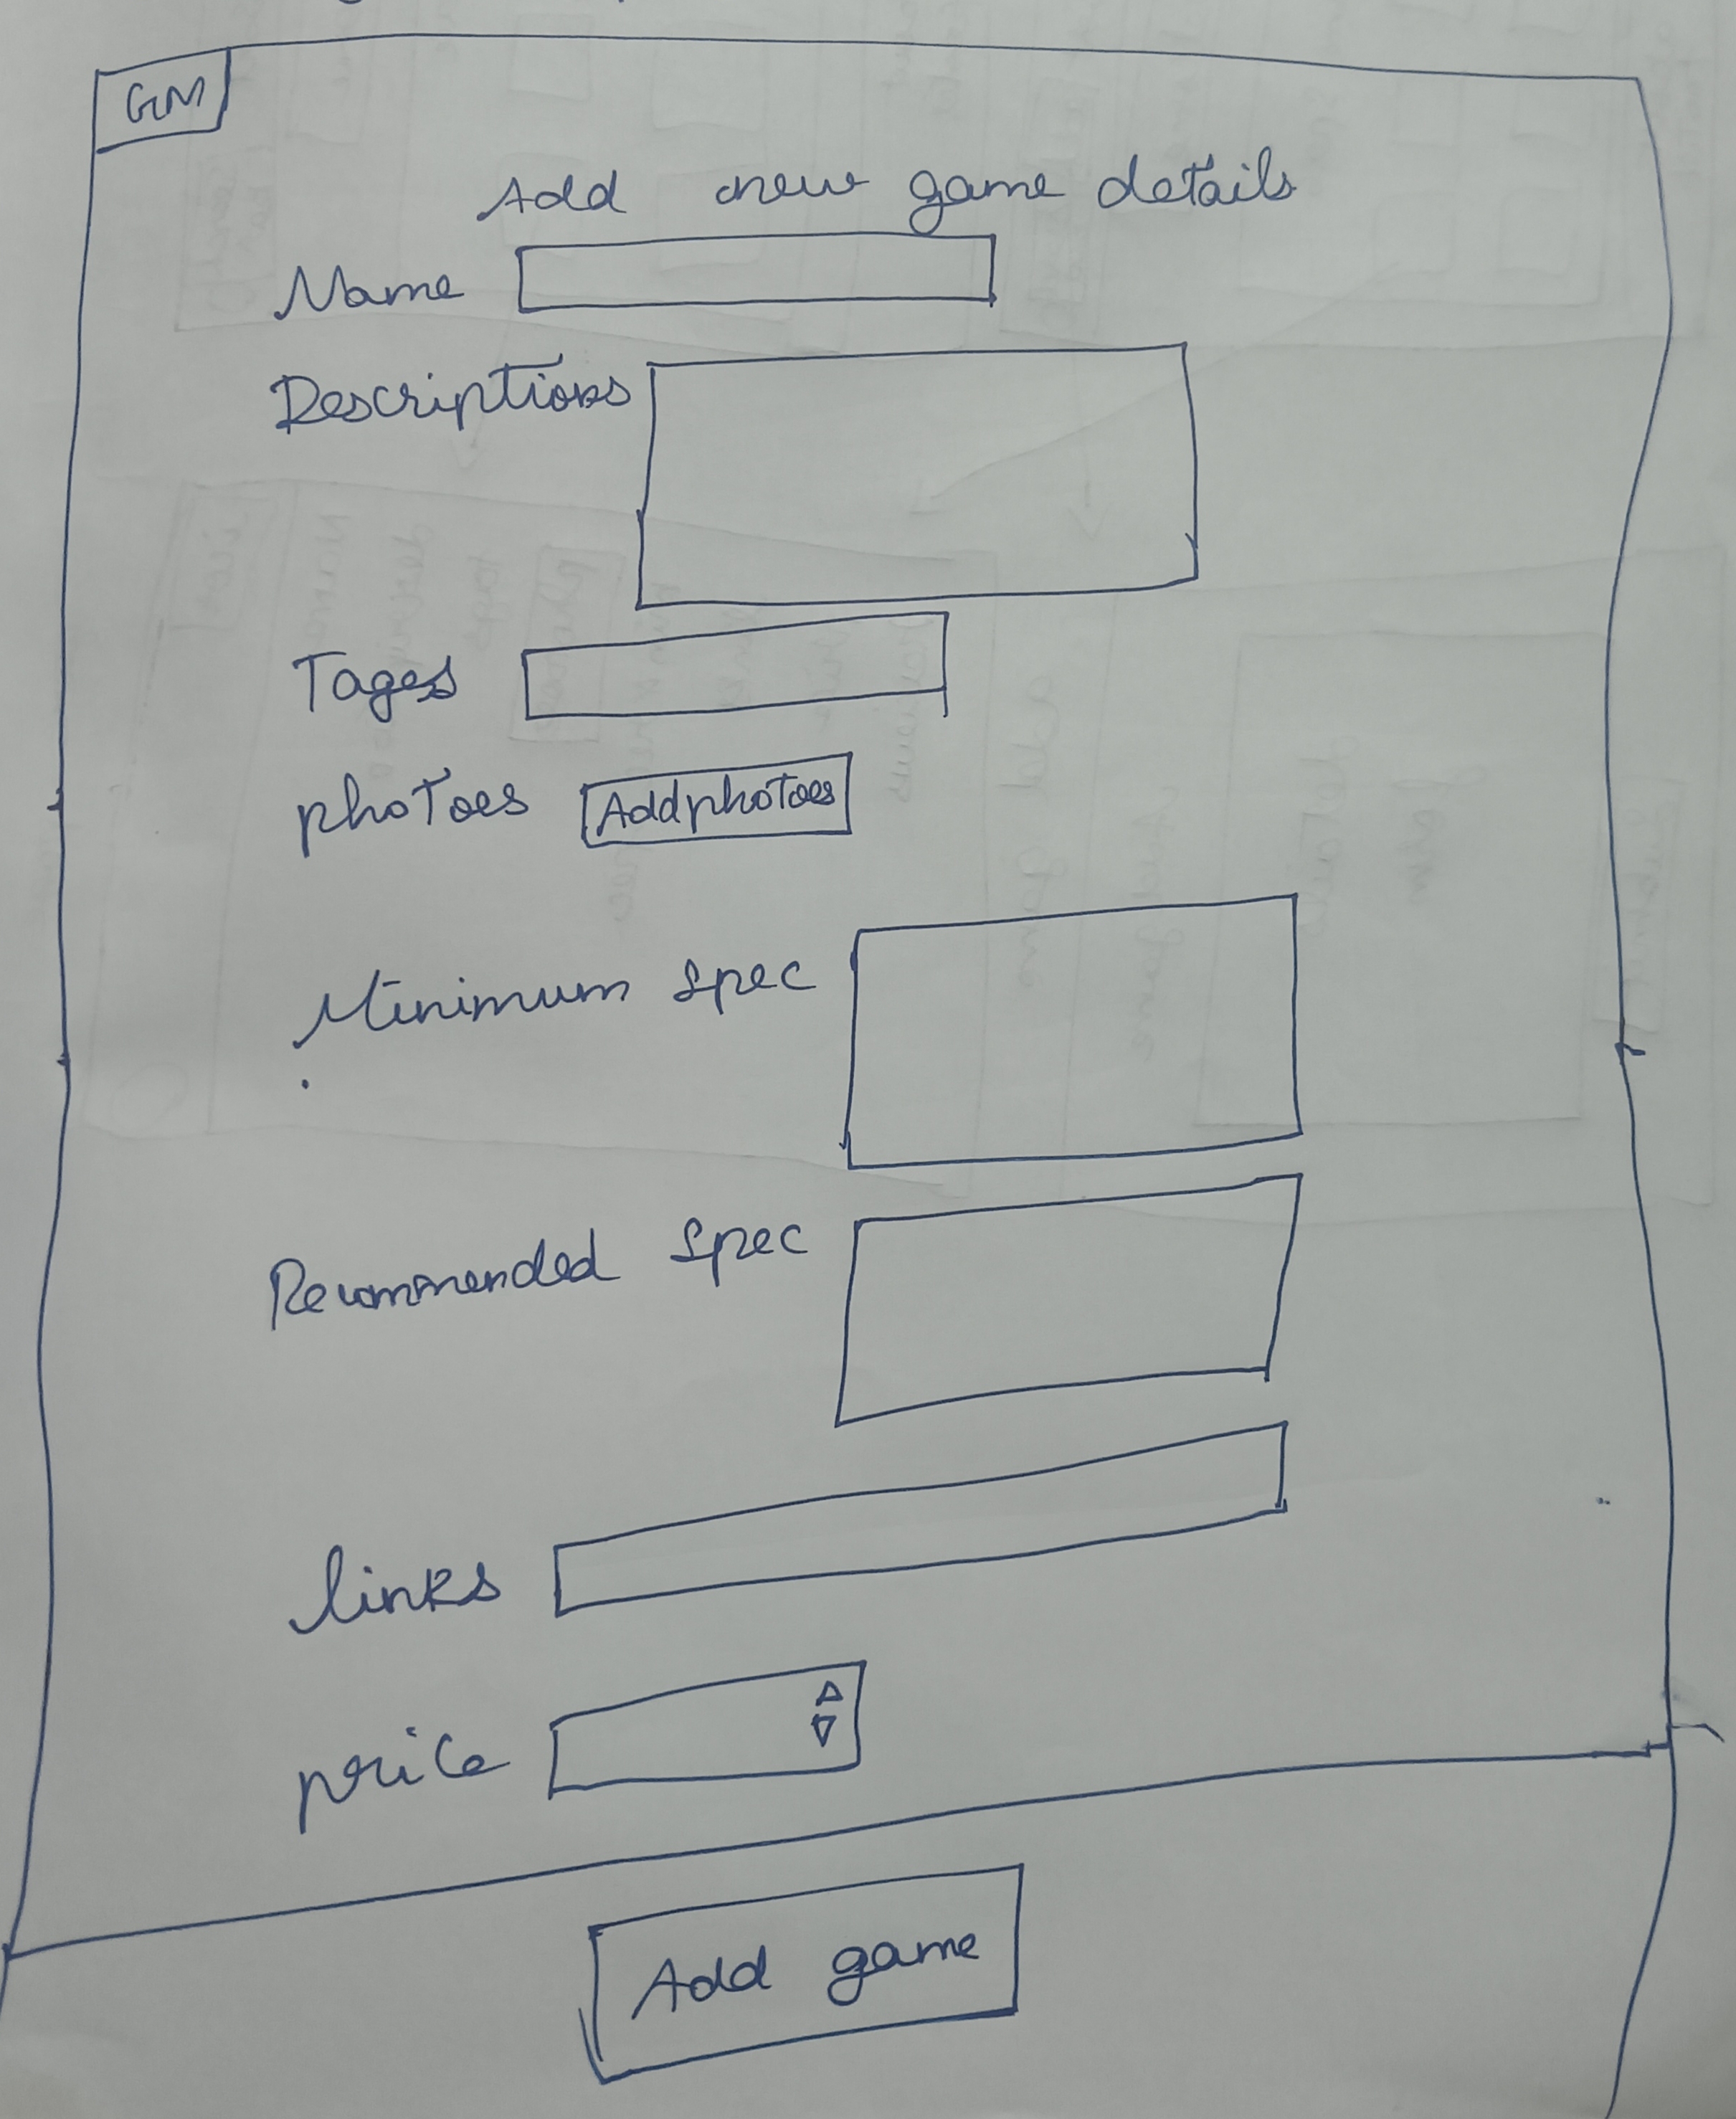 GM
Add new game details
Name
Descriptions
Tages
photoes Add photoes
Minimum spec
Recommended spec
links
price
Add game